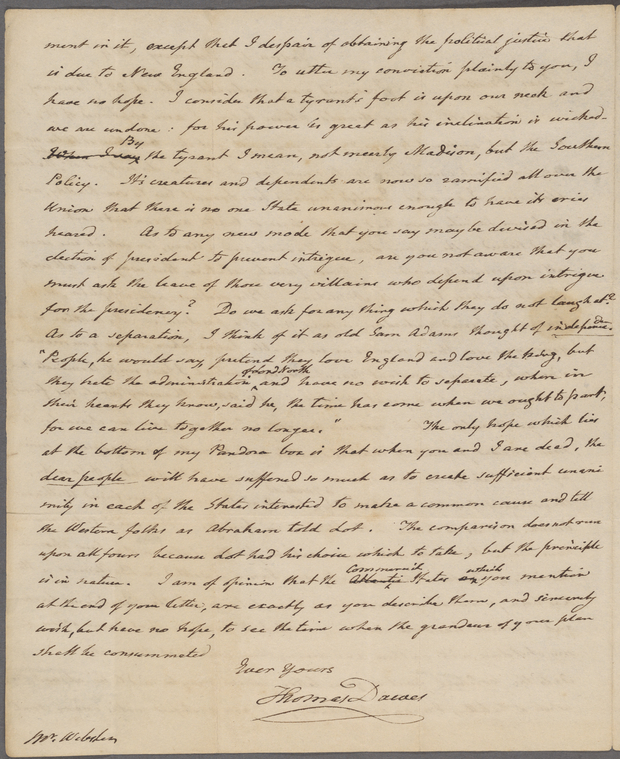 ment in it, except that I despair of obtaining the political justice that
is due to New England. To utter my conviction plainly to you, I
have no hope. I consider that a tyrant's foot is upon our neck and
we are undone: for his power is great as his inclination is wicked.
By the tyrant I mean, not meerly Madison, but the Southern
Policy. Its creatures and dependents are now so ramified all over the
Union that there is no one State unanimous enough to have its cries
heared. As to any new mode that you say may be devised in the
election of president to prevent intrigue, are you not aware that you
must ask the leave of those very villains who depend upon intrigue
for the presidency? Do we ask for any thing which they do not laugh at?
As to a separation, I think of it as old Sam Adams thought of independence.
"People, he would say, pretend they love England and love the King, but
they hate the administration of Lord North and have no wish to separate, when in
their hearts they know, said he, the time has come when we ought to part,
for we can live together no longer." The only hope which lies
at the bottom of my Pandora box is that when you and I are dead, the
dear people will have suffered so much as to create sufficient unani
mity in each of the States interested to make a common cause and tell
the Western folks as Abraham told Lot. The comparison does not run
upon all fours because Lot had his choice which to take, but the principle
is in nature. I am of opinion that the Commercial Atlantic States which you mention
at the end of your letter, are exactly as you describe them, and sincerely
wish, but have no hope, to see the time when the grandeur of your plan
shall be consummated
Ever Yours
Thomas Dawes
Mr. Webster